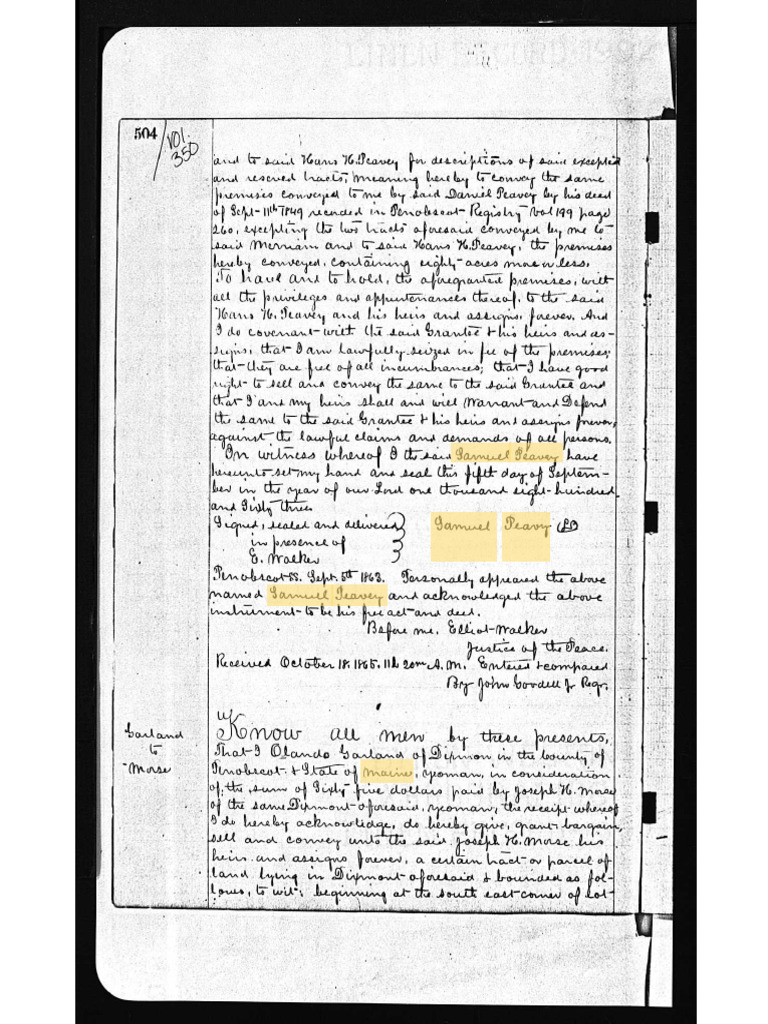 504
Vol.
350
and to said Hans H. Peavey for descriptions of said excepted
and reserved tracts, meaning hereby to convey the same
premises conveyed to me by said Daniel Peavey by his deed
of Sept- 11th 1849 recorded in Penobscot Registry Vol 199 page
260, excepting the two tracts aforesaid conveyed by me to
said Merriam and to said Hans H. Peavey, the premises
hereby conveyed, containing eighty acres more or less.
To have and to hold, the aforegranted premises, with
all the privileges and appurtenances thereof, to the said
Hans H. Peavey and his heirs and assigns forever. And
I do covenant with the said Grantee & his heirs and as-
signs, that I am lawfully seized in fee of the premises;
that they are free of all incumbrances; that I have good
right to sell and convey the same to the said Grantee and
that I and my heirs shall and will Warrant and Defend
the same to the said Grantee & his heirs and assigns forever,
against the lawful claims and demands of all persons.
In witness whereof I the said Samuel Peavey have
hereunto set my hand and seal this fifth day of Septem-
ber in the year of our Lord one thousand eight hundred
and Sixty three
Signed, sealed and delivered
in presence of
E. Walker
Samuel Peavy
Penobscot SS. Sept. 5th 1863. Personally appeared the above
named Samuel Peavey and acknowledged the above
instrument to be his free act and deed.
Before me. Elliot Walker
Justice of the Peace.
Received October 18. 1865. 11h 20m A.M. Entered & compared
By John Goodell Jr Regr.
Garland
to
Morse
Know all men by these presents,
That I Olando Garland of Dixmon in the County of
Penobscot & State of Maine, yoman, in consideration
of, the, sum of Sixty five dollars paid by Joseph H. Morse
of the same Dixmont aforesaid, yeoman, the receipt whereof
I do hereby acknowledge, do hereby give, grant bargain,
sell and convey unto the said Joseph H. Morse his
heirs and assigns forever, a certain tract or parcel of
land lying in Dixmont aforesaid & bounded as fol-
lows, to wit; beginning at the south east corner of lot